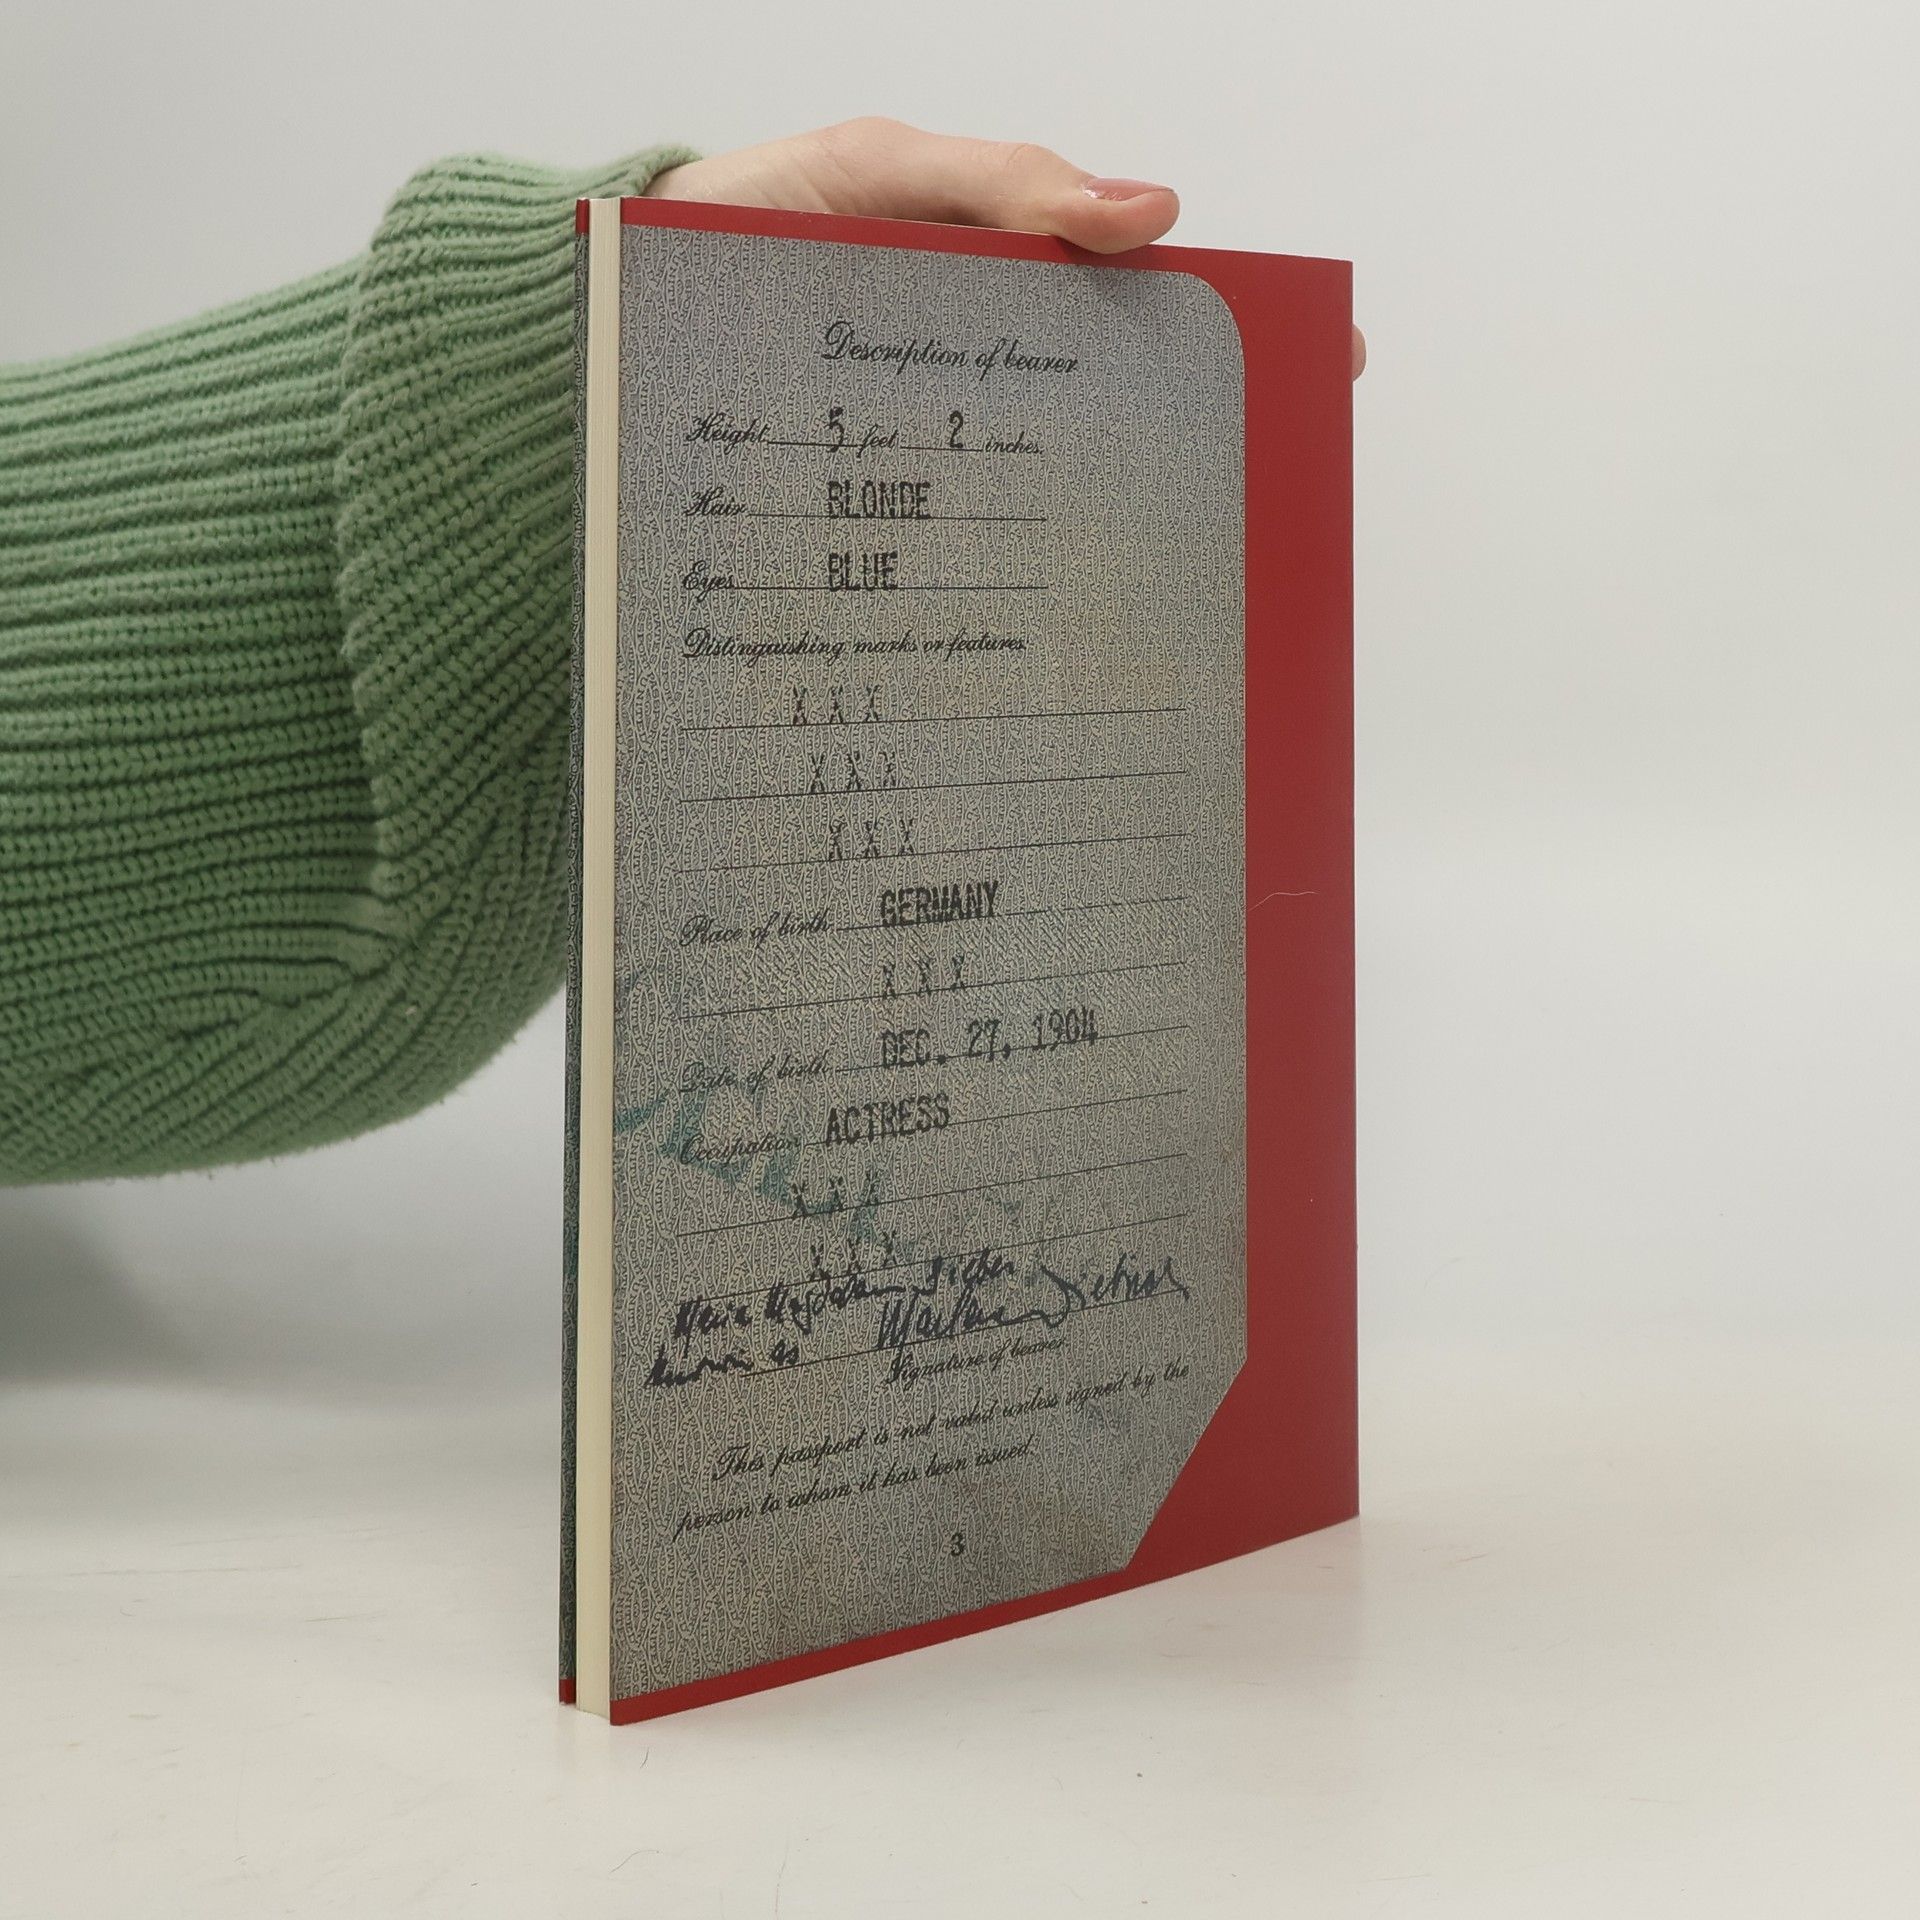 Description of bearer
Height 5 feet 2 inches.
Hair BLONDE
Eyes BLUE
Distinguishing marks or features:
X X X
X X X
X X X
Place of birth GERMANY
X X X
Date of birth DEC. 27, 1904
Occupation ACTRESS
X X X
X X X
Maria Magdalena Sieber
known as Marlene Dietrich
Signature of bearer
This passport is not valid unless signed by the
person to whom it has been issued.
3